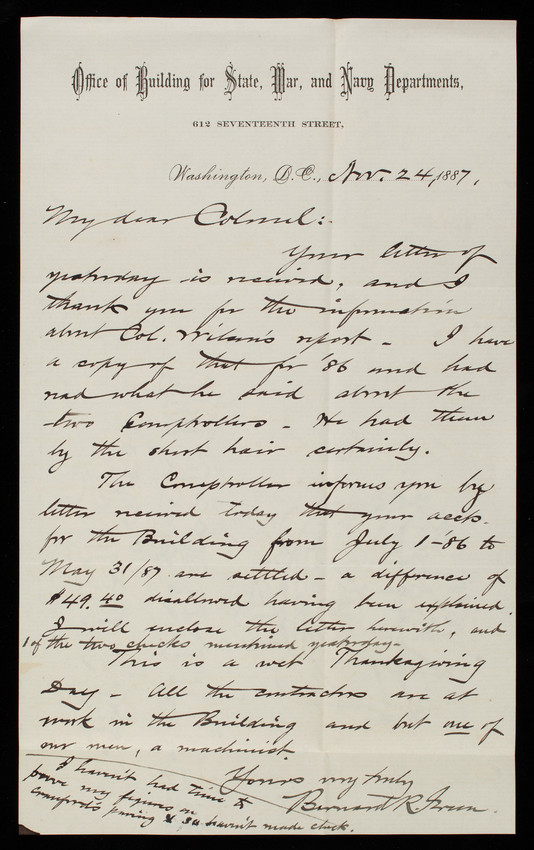 Office of Building for State, War, and Navy Departments,
612 SEVENTEENTH STREET.
Washington, D.C., Nov. 24, 1887,
My dear Colonel:
Your letter of
yesterday is received, and I
thank you for the information
about Col. Wilson's report - I have
a copy of that for '86 and had
read what he said about the
two Comptrollers - He had them
by the short hair certainly.
The Comptroller informs you by
letter received today that your accts.
for the Building from July 1-86 to
May 31/87 are settled - a difference of
$49.40 disallowed having been explained.
I will enclose the letter herewith, and
1 of the two checks mentioned yesterday -
This is a wet Thanksgiving
Day - All the contractors are at
work in the Building and but one of
our men, a machinist.
Yours very truly
Bernard R. Green.
I haven't had time to
prove my figures on
Crawford's paving & so haven't made check.